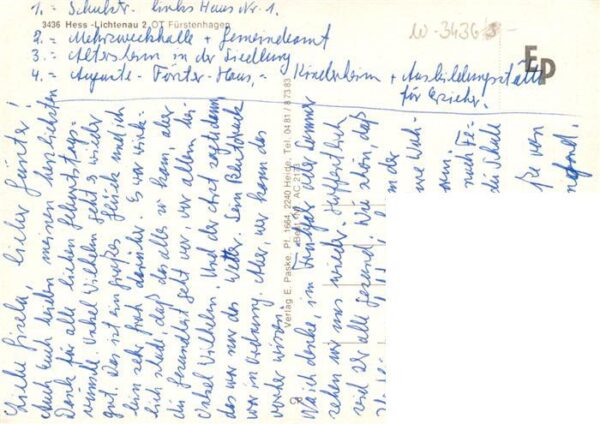 1. = Schulstr. links Haus Nr. 1.
3436 Hess.-Lichtenau 2, OT Fürstenhagen
2. = Mehrzweckhalle + Gemeindeamt
3. = Altersheim in der Siedlung
4. = Auguste-Förster-Haus, = Kinderheim + Ausbildungsstätte
für Erzieher.
W-3436
EP
Verlag E. Paske, Pf. 1664, 2240 Heide, Tel. 04 81 / 8 73 83
Best.-Nr. AC 2113
Liebe Gisela, lieber Günter!
Auch Euch beiden meinen herzlichsten
Dank für alle lieben Geburtstags-
wünsche. Onkel Wilhelm geht es wieder
gut. Das ist ein großes Glück und ich
bin sehr froh darüber. Es war wirk-
lich schade, daß das alles so kam, aber
die Gesundheit geht vor, vor allem bei
Onkel Wilhelm. Und der Arzt sagt dann,
das war nur das Wetter. Sein Blutdruck
war in Ordnung. Aber, wer kann das
vorher wissen.
Na ich denke, im Frühjahr oder Sommer
sehen wir uns wieder. Hoffentlich
seid Ihr alle gesund. Wie schön, daß
in der
nach Fe-
die Schule
von